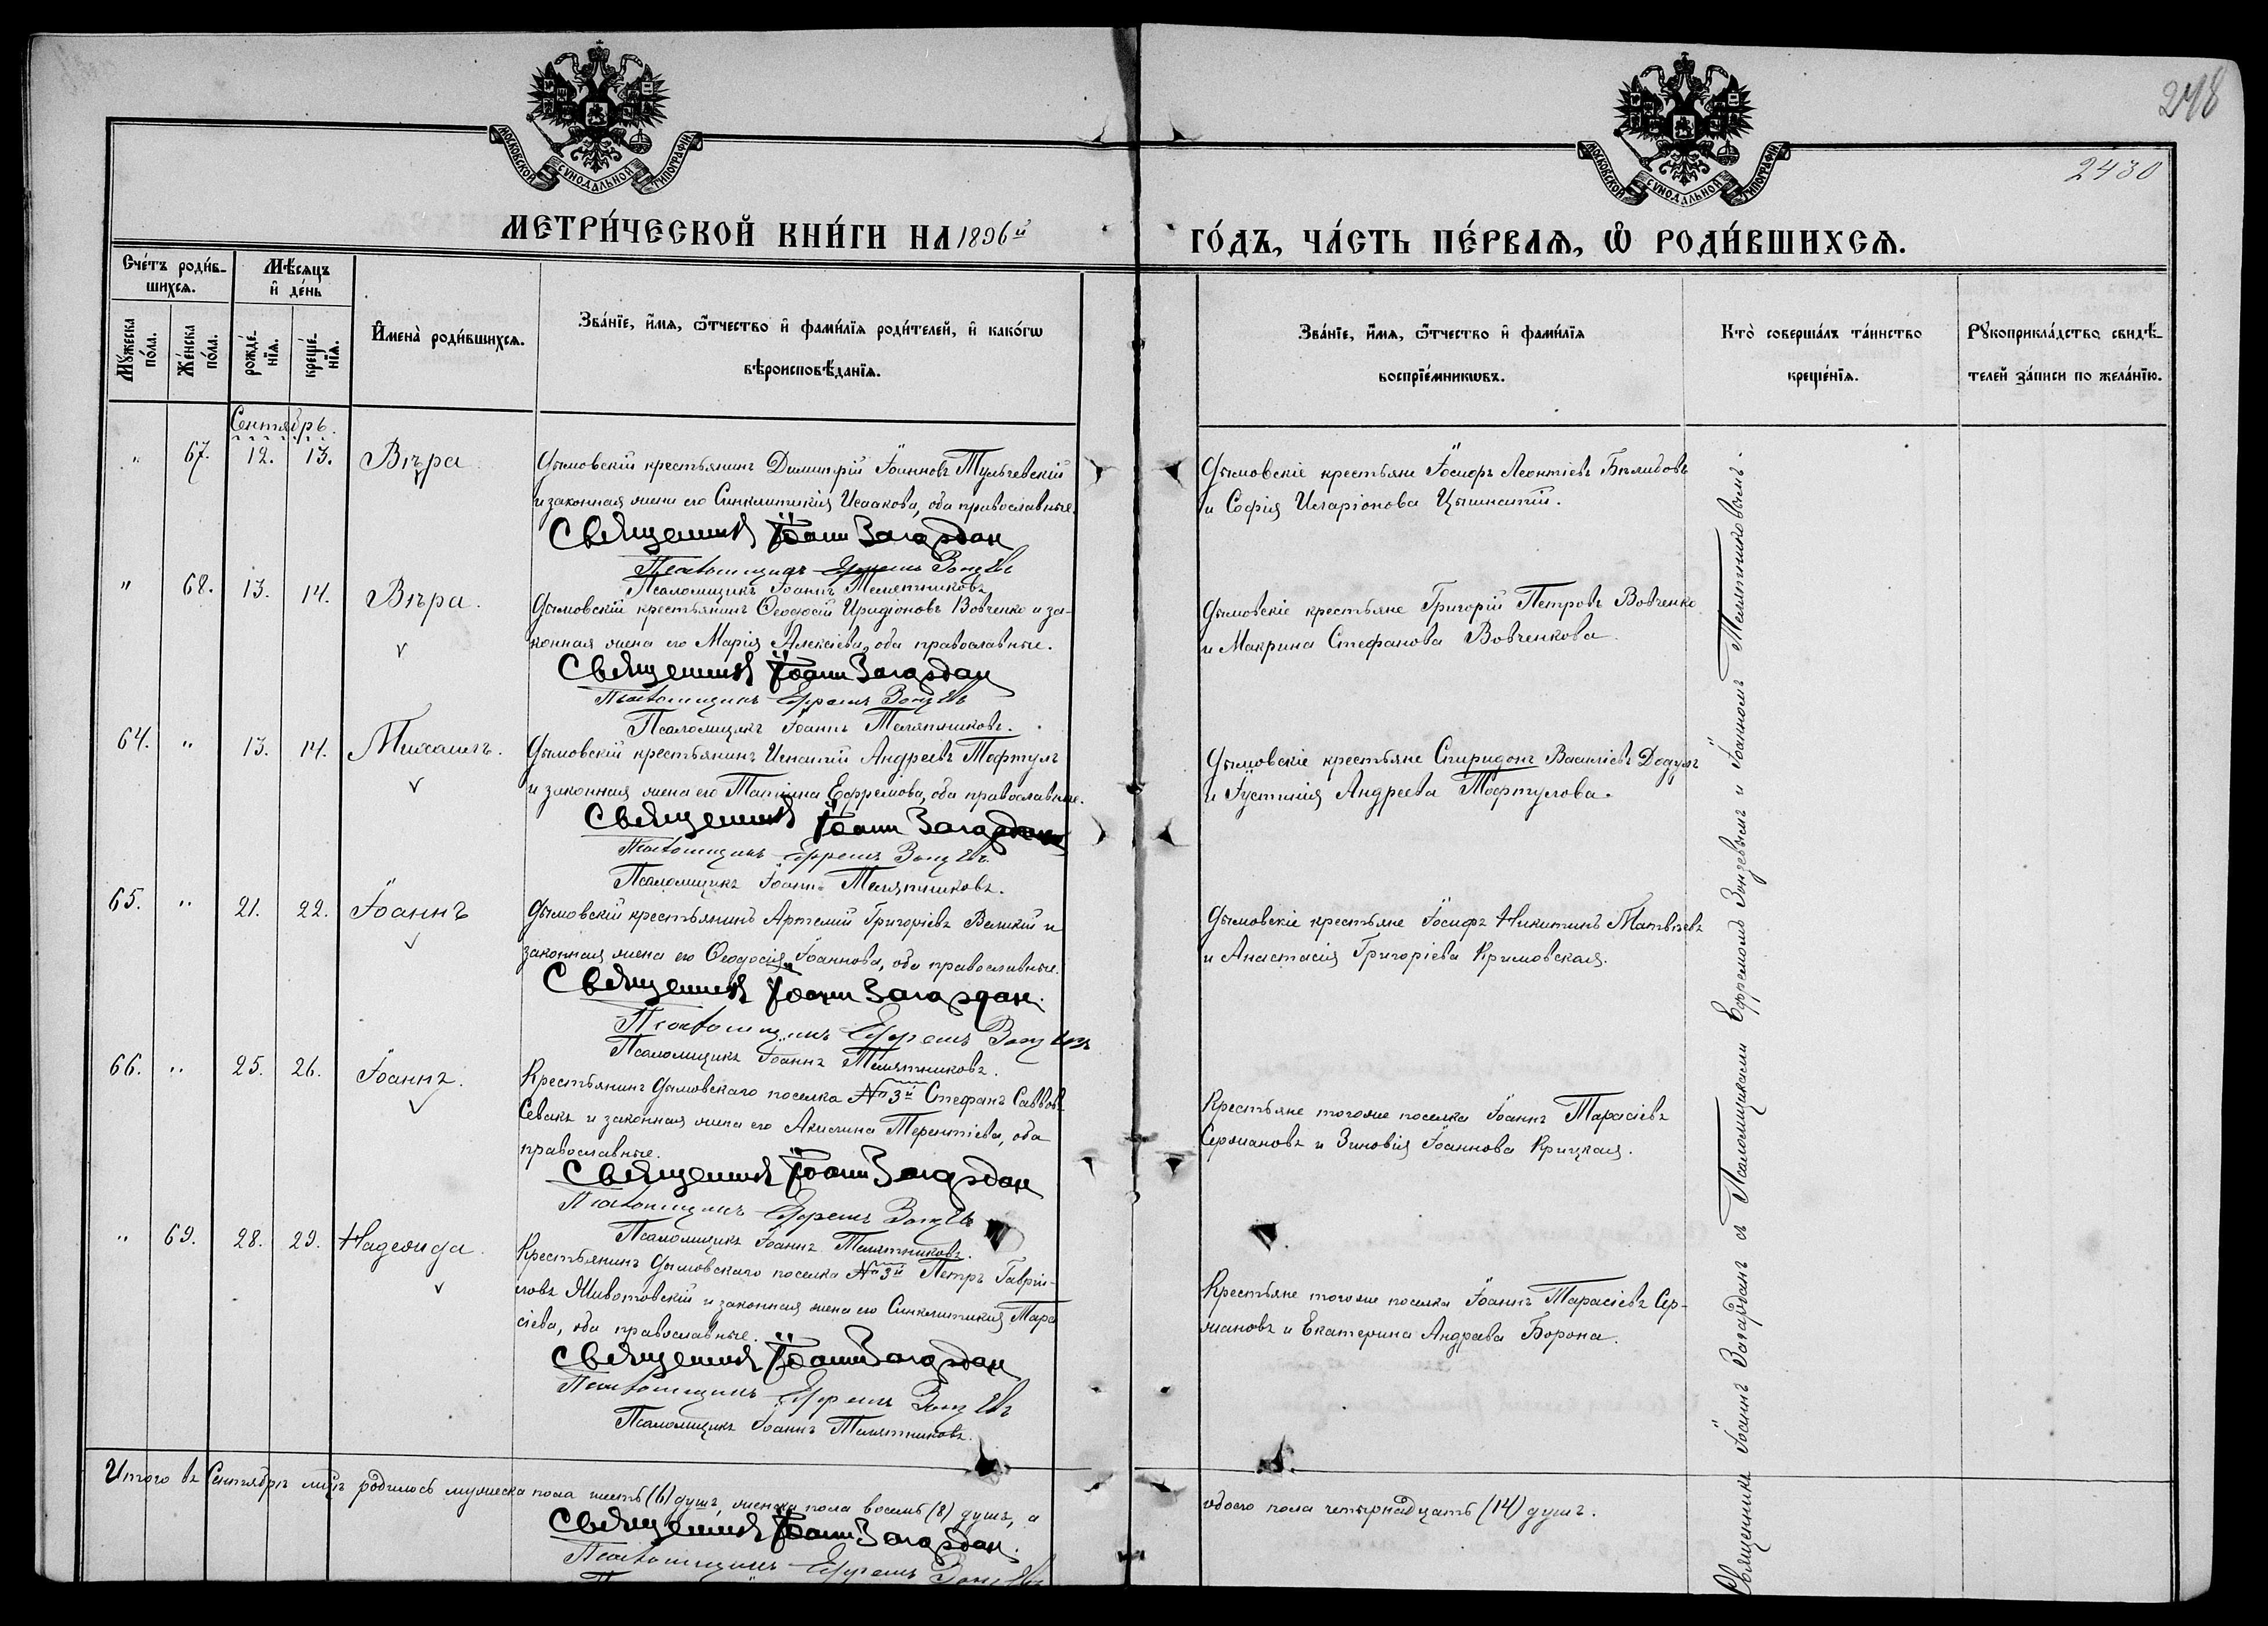 248
2430
МОСКОВСКОЙ СѴНОДАЛЬНОЙ ТИПОГРАФІИ
МОСКОВСКОЙ СѴНОДАЛЬНОЙ ТИПОГРАФІИ
МЕТРИ́ЧЕСКОЙ КНИ́ГИ НА 1896й ГО́ДЪ, ЧА́СТЬ ПЕ́РВАѦ, Ѽ РОДИ́ВШИХСѦ.
Сче́тъ роди́в-
шихсѧ.
Мѣ́сѧцъ
и҆ де́нь
Мꙋ́жеска по́ла.
Же́нска по́ла.
рожде́-
нїѧ.
креще́-
нїѧ.
И҆мена̀ роди́вшихсѧ.
Зва́нїе, и҆́мѧ, ѻ҆́тчество и҆ фами́лїѧ роди́телей, и҆ како́гѡ
вѣроисповѣ́данїѧ.
Зва́нїе, и҆́мѧ, ѻ҆́тчество и҆ фами́лїѧ
воспрїе́мникѡвъ.
Кто̀ соверша́лъ та́инство
креще́нїѧ.
Рꙋкоприкла́дство свидѣ́-
телей за́писи по жела́нїю.
Сентябрь.
" 67. 12. 13. Вѣра
Дымовскій крестьянинъ Димитрій Іоанновъ Тульчевскій
и законная жена его Синклитикія Исаакова, оба православные.
Священник Іоанн Загардан
Псаломщикъ Ефремъ Зонзевъ
Псаломщикъ Іоаннъ Телятниковъ
Дымовскіе крестьяне Іосифъ Леонтіевъ
и Софія Иларіонова
" 68. 13. 14. Вѣра.
Дымовскій крестьянинъ Ѳеодосій Иридіоновъ Вовченко и за-
конная жена его Марія Алексіева, оба православные.
Священник Іоанн Загардан
Псаломщикъ Ефремъ Зонзевъ
Псаломщикъ Іоаннъ Телятниковъ.
Дымовскіе крестьяне Григорій Петровъ Вовченко
и Макрина Стефанова Вовченкова.
64. " 13. 14. Михаилъ.
Дымовскій крестьянинъ Игнатій Андреевъ Тофтулъ
и законная жена его Татіана Ефремова, оба православные.
Священник Іоанн Загардан
Псаломщикъ Ефремъ Зонзевъ
Псаломщикъ Іоаннъ Телятниковъ.
Дымовскіе крестьяне Спиридонъ Василіевъ Додулъ
и Іустинія Андреева Тофтулова.
65. " 21. 22. Іоаннъ
Дымовскій крестьянинъ Артемій Григоріевъ Великій и
законная жена его Ѳеодосія Іоаннова, оба православные.
Священник Іоанн Загардан.
Псаломщикъ Ефремъ Зонзевъ
Псаломщикъ Іоаннъ Телятниковъ.
Дымовскіе крестьяне Іосифъ Никитинъ Матвѣевъ
и Анастасія Григоріева Кримовская.
66. " 25. 26. Іоаннъ.
Крестьянинъ Дымовскаго поселка № 3й Стефанъ Саввовъ
Севакъ и законная жена его Акилина Терентіева, оба
православные.
Священник Іоанн Загардан
Псаломщикъ Ефремъ Зонзевъ
Псаломщикъ Іоаннъ Телятниковъ.
Крестьяне тогоже поселка Іоаннъ Тарасіевъ
Сержановъ и Зиновія Іоаннова Крицкая.
" 69. 28. 29. Надежда.
Крестьянинъ Дымовскаго поселка № 3й Петръ Гаврі-
ловъ Животовскій и законная жена его Синклитикія Тара
сіева, оба православные.
Священник Іоанн Загардан
Псаломщикъ Ефремъ Зонзевъ
Псаломщикъ Іоаннъ Телятниковъ.
Крестьяне тогоже поселка Іоаннъ Тарасіевъ Сер-
жановъ и Екатерина Андреева Борона.
Священникъ Іоаннъ Загарданъ съ Псаломщиками Ефремомъ Зонзевымъ и Іоанномъ Телятниковымъ.
Итого въ Сентябрѣ мцѣ родилось мужеска пола шесть (6) душъ, женска пола восемь (8) душъ, а обоего пола четырнадцать (14) душъ.
Священник Іоанн Загардан.
Псаломщикъ Ефремъ Зонзевъ